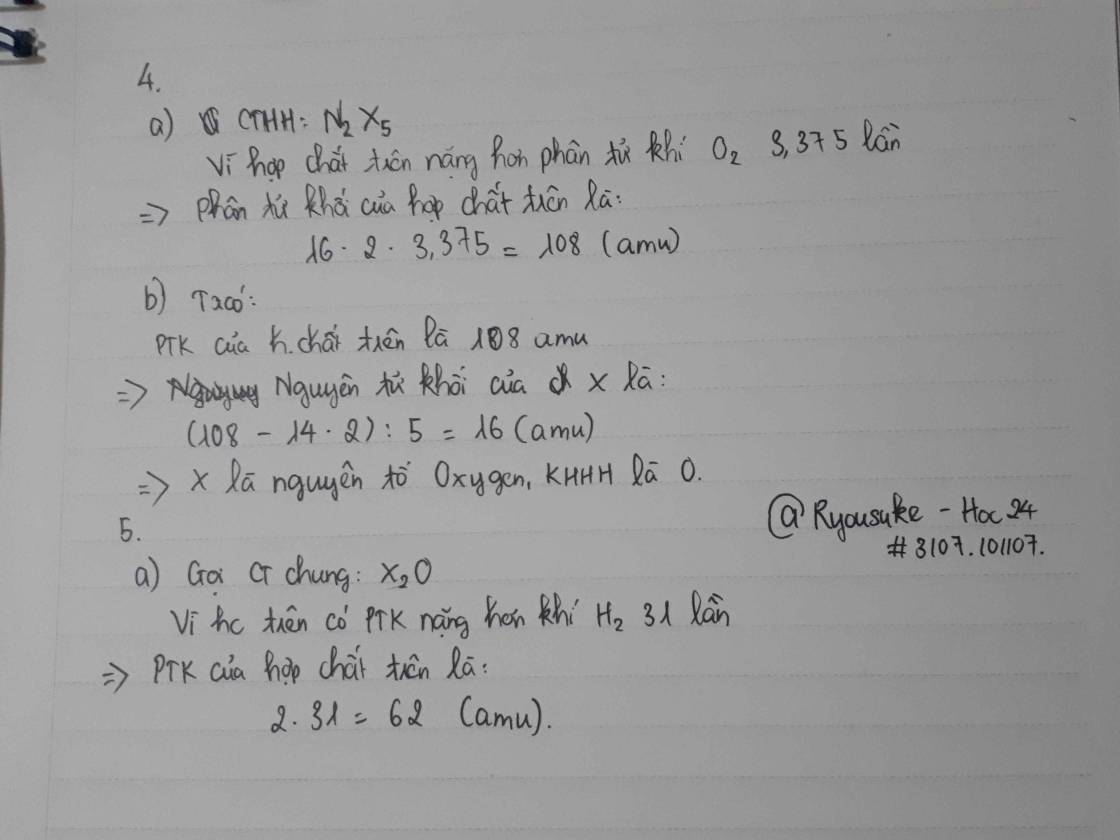 4.
a) CTHH: N₂X₅
Vì hợp chất trên nặng hơn phân tử khí O₂ 3,375 lần
=> Phân tử khối của hợp chất trên là:
16 . 2 . 3,375 = 108 (amu)
b) Ta có:
PTK của h.chất trên là 108 amu
=> Nguyên tử khối của X là:
(108 - 14 . 2) : 5 = 16 (amu)
=> X là nguyên tố Oxygen, KHHH là O.
@Ryousuke - Hoc24
#3107.101107.
5.
a) Gọi CT chung: X₂O
Vì hc trên có PTK nặng hơn khí H₂ 31 lần
=> PTK của hợp chất trên là:
2 . 31 = 62 (amu).